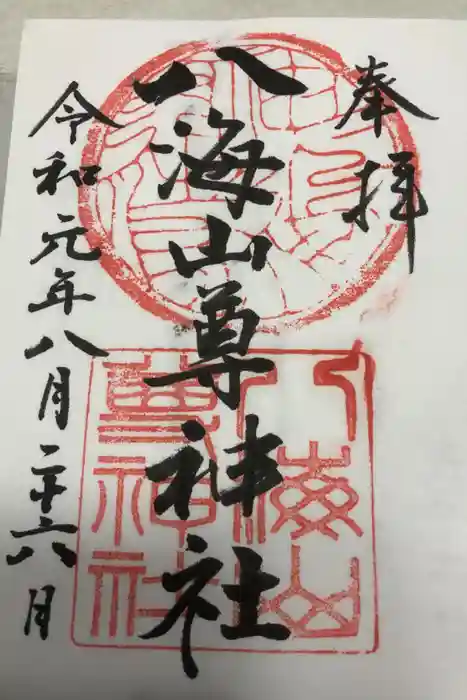 奉拝
八海山尊神社
令和元年八月二十六月
八海山
尊神社